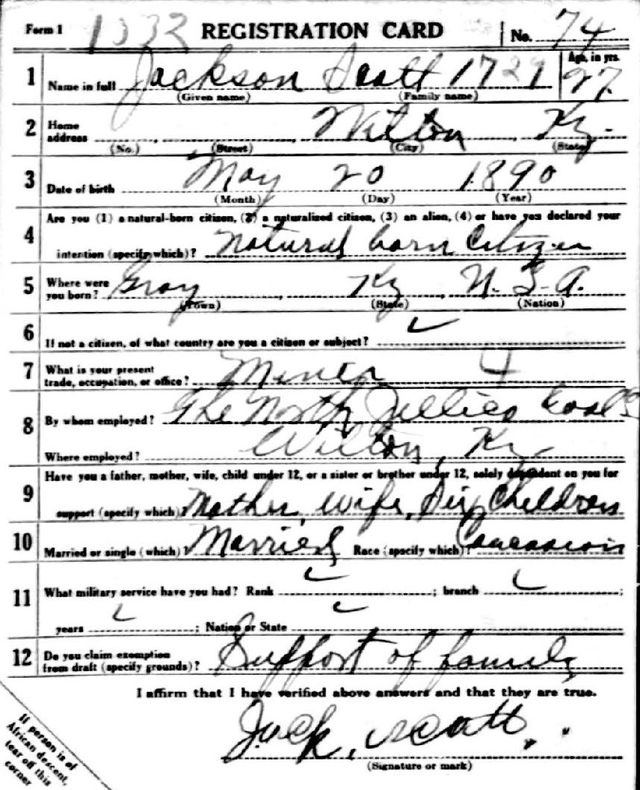 Form 1 1332 REGISTRATION CARD No. 74
1 Name in full Jackson Scott 1729 Age, in yrs. 27
(Given name) (Family name)
2 Home address Wilton Ky.
(No.) (Street) (City) (State)
3 Date of birth May 20 1890
(Month) (Day) (Year)
4 Are you (1) a natural-born citizen, (2) a naturalized citizen, (3) an alien, (4) or have you declared your
intention (specify which)? Natural born Citizen
5 Where were you born? Gray Ky U.S.A.
(Town) (State) (Nation)
6 If not a citizen, of what country are you a citizen or subject?
7 What is your present trade, occupation, or office? Miner 4
8 By whom employed? The North Jellico Coal Co
Where employed? Wilton, Ky
9 Have you a father, mother, wife, child under 12, or a sister or brother under 12, solely dependent on you for
support (specify which)? Mother, Wife, Six Children
10 Married or single (which)? Married Race (specify which)? Caucasian
11 What military service have you had? Rank ; branch ;
years ; Nation or State
12 Do you claim exemption from draft (specify grounds)? Support of family
I affirm that I have verified above answers and that they are true.
Jack Scott
(Signature or mark)
If person is of
African descent,
tear off this
corner